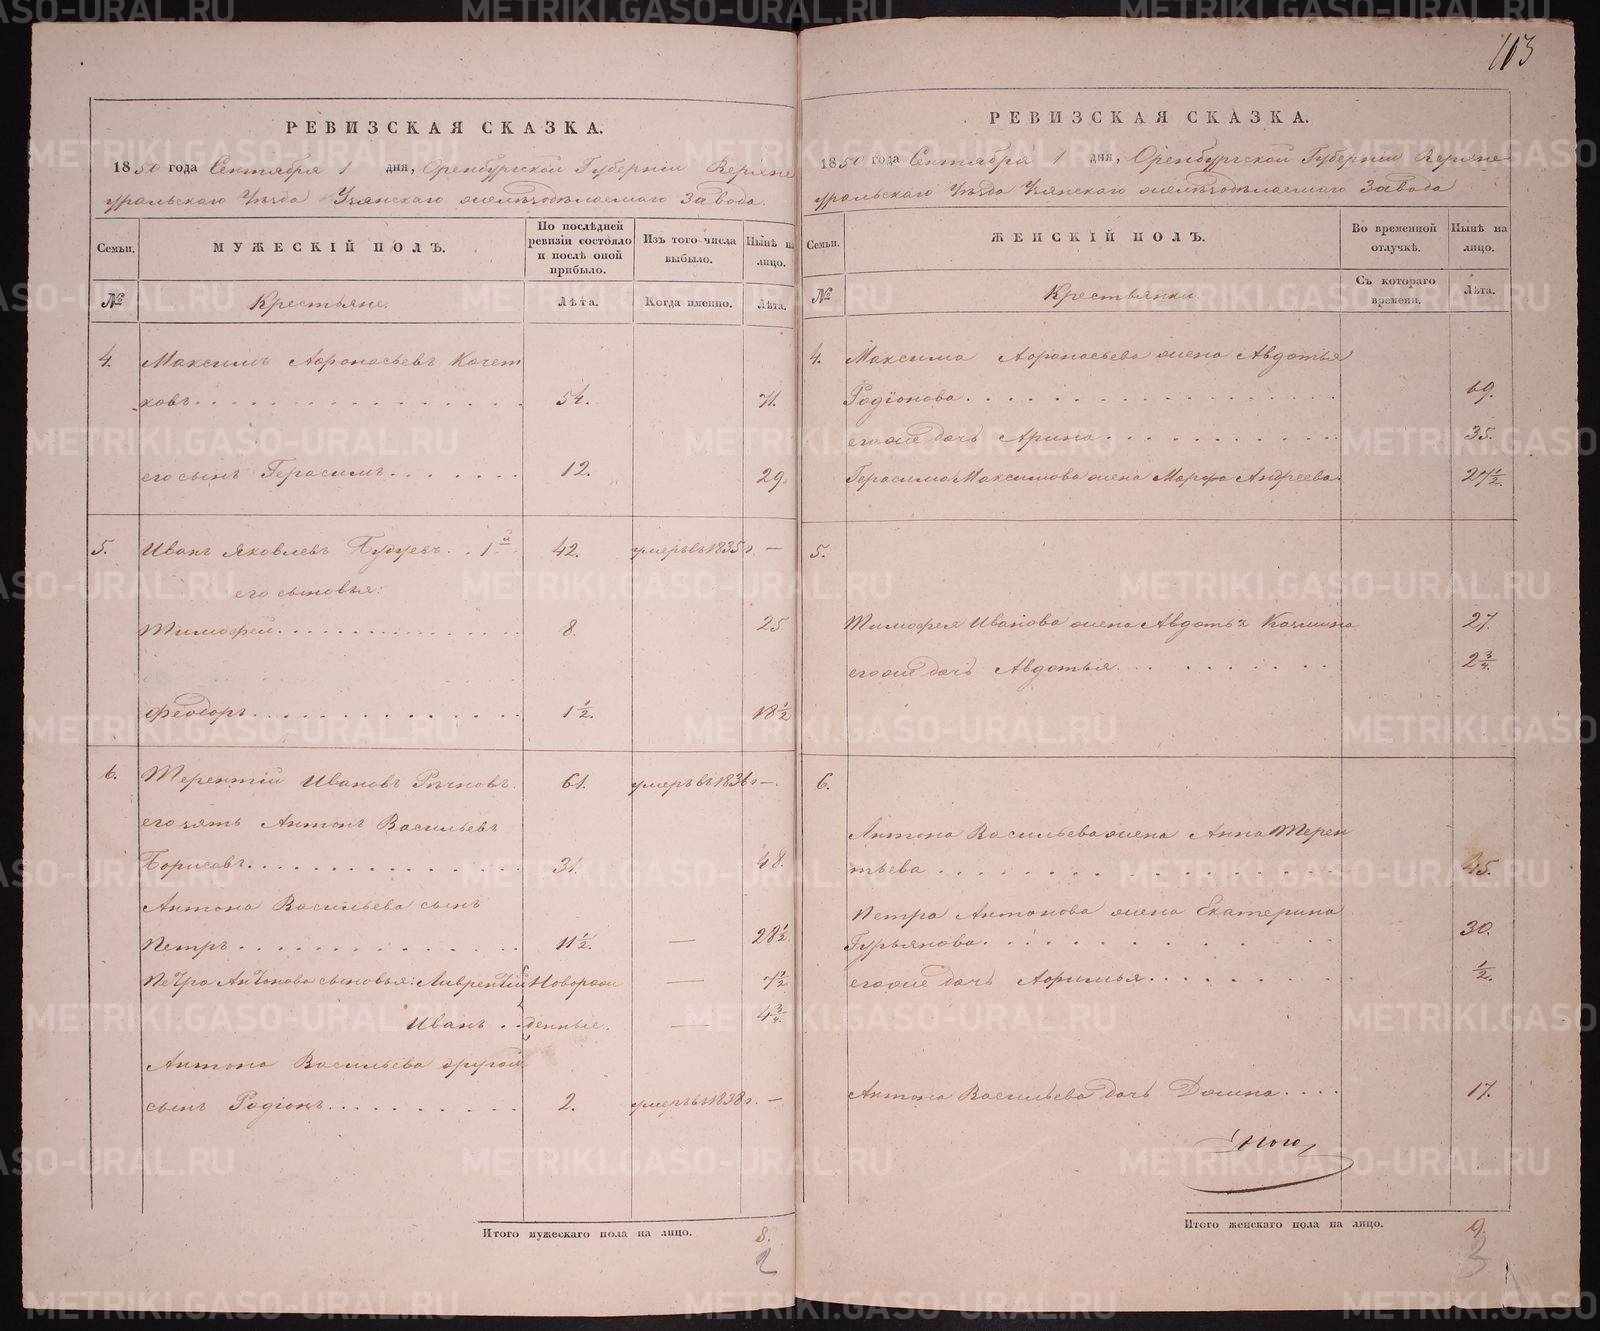 113
РЕВИЗСКАЯ СКАЗКА.
1850 года Сентября 1 дня, Оренбургской Губерніи Верхне
уральскаго Уѣзда Узянскаго желѣзодѣлаемаго Завода.
Семьи.
МУЖЕСКІЙ ПОЛЪ.
По послѣдней ревизіи состояло и послѣ оной прибыло.
Изъ того числа выбыло.
Нынѣ на лицо.
№
Крестьяне.
Лѣта.
Когда именно.
Лѣта.
4. Максимъ Афонасьевъ Кочет
ковъ 54. 71.
его сынъ Герасимъ 12. 29.
5. Иванъ Яковлевъ 1й 42. умеръ въ 1835 г. —
его сыновья:
Тимофей 8. 25
Феодоръ 1 1/2. 18 1/2
6. Терентій Ивановъ 61. умеръ въ 1836 г. —
его зять Антонъ Васильевъ
Борисовъ 31. 48.
Антона Васильева сынъ
Петръ 11 1/2. — 28 1/2.
Петра Антонова сыновья: Лаврентій Новорож — 7 1/2
Иванъ денные. — 4 3/4.
Антона Васильева другой
сынъ Родіонъ 2. умеръ въ 1838 г. —
Итого мужескаго пола на лицо. 8.
2
РЕВИЗСКАЯ СКАЗКА.
1850 года Сентября 1 дня, Оренбургской Губерніи Верхне
уральскаго Уѣзда Узянскаго желѣзодѣлаемаго Завода
Семьи.
ЖЕНСКІЙ ПОЛЪ.
Во временной отлучкѣ.
Нынѣ на лицо.
№
Крестьянки.
Съ котораго времени.
Лѣта.
4. Максима Афонасьева жена Авдотья
Родіонова 69.
его же дочь Арина 35.
Герасима Максимова жена Марфа Андреева 27 1/2.
5.
Тимофея Иванова жена Авдотья 27.
его же дочь Авдотья 2 3/4.
6.
Антона Васильева жена Анна Терен
тьева 45.
Петра Антонова жена Екатерина
Гурьянова 30.
его же дочь 1/2.
Антона Васильева дочь Домна 17.
Итого женскаго пола на лицо. 9.
3
METRIKI.GASO-URAL.RU